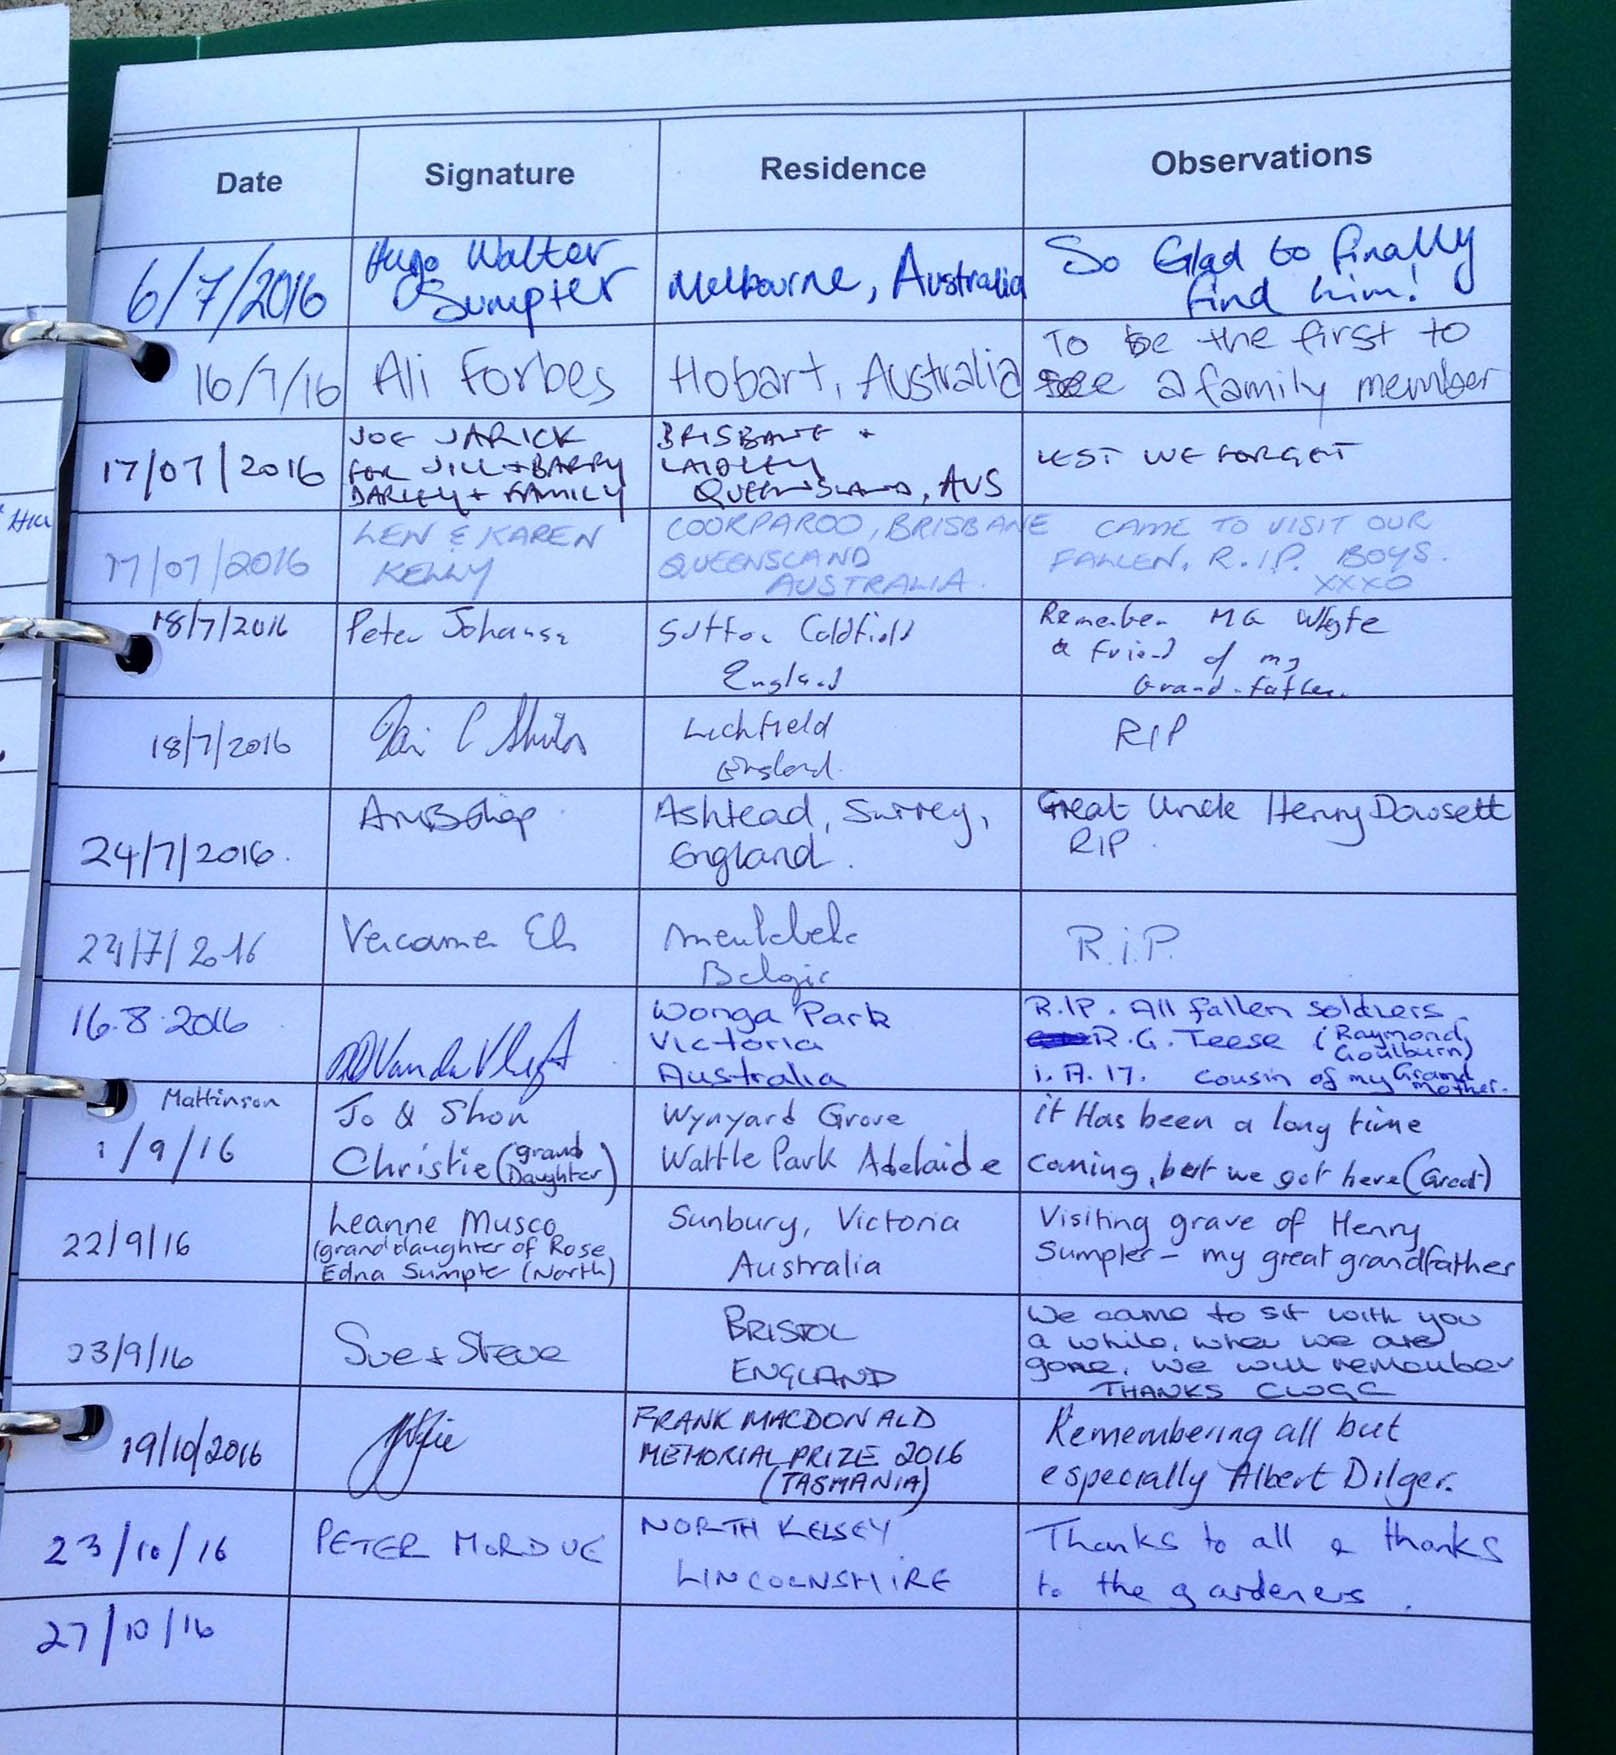 Date Signature Residence Observations
6/7/2016 Hugo Walter Sumpter Melbourne, Australia So Glad to finally find him!
16/7/16 Ali Forbes Hobart, Australia To be the first to see a family member
17/07/2016 JOE JARICK FOR JILL + BARRY DARLEY + FAMILY BRISBANE + LAIDLEY QUEENSLAND, AUS LEST WE FORGET
17/07/2016 LEN & KAREN KELLY COORPAROO, BRISBANE QUEENSLAND AUSTRALIA. CAME TO VISIT OUR FALLEN. R.I.P. BOYS. XXXO
18/7/2016 Peter Sutton Coldfield England Remember MG Whyte a friend of my Grand-father.
18/7/2016 Lichfield England. RIP
24/7/2016. Ashtead, Surrey, England. Great Uncle Henry Dowsett RIP.
24/7/2016 Belgie R.i.P.
16.8.2016 Wonga Park Victoria Australia R.I.P. All fallen soldiers R.G. Teese (Raymond Goulburn) 1.A.17. cousin of my Grand mother.
Mattinson
1/9/16 Jo & Shon Christie (grand Daughter) Wynyard Grove Wattle Park Adelaide it Has been a long time coming, but we got here (Great)
22/9/16 Leanne Musco (granddaughter of Rose Edna Sumpter (North) Sunbury, Victoria Australia Visiting grave of Henry Sumpter - my great grandfather
23/9/16 Sue + Steve BRISTOL ENGLAND We came to sit with you a while, when we are gone, we will remember THANKS CWGC
19/10/2016 FRANK MACDONALD MEMORIAL PRIZE 2016 (TASMANIA) Remembering all but especially Albert Dilger.
23/10/16 PETER MORDUE NORTH KELSEY LINCOLNSHIRE Thanks to all & thanks to the gardeners.
27/10/16